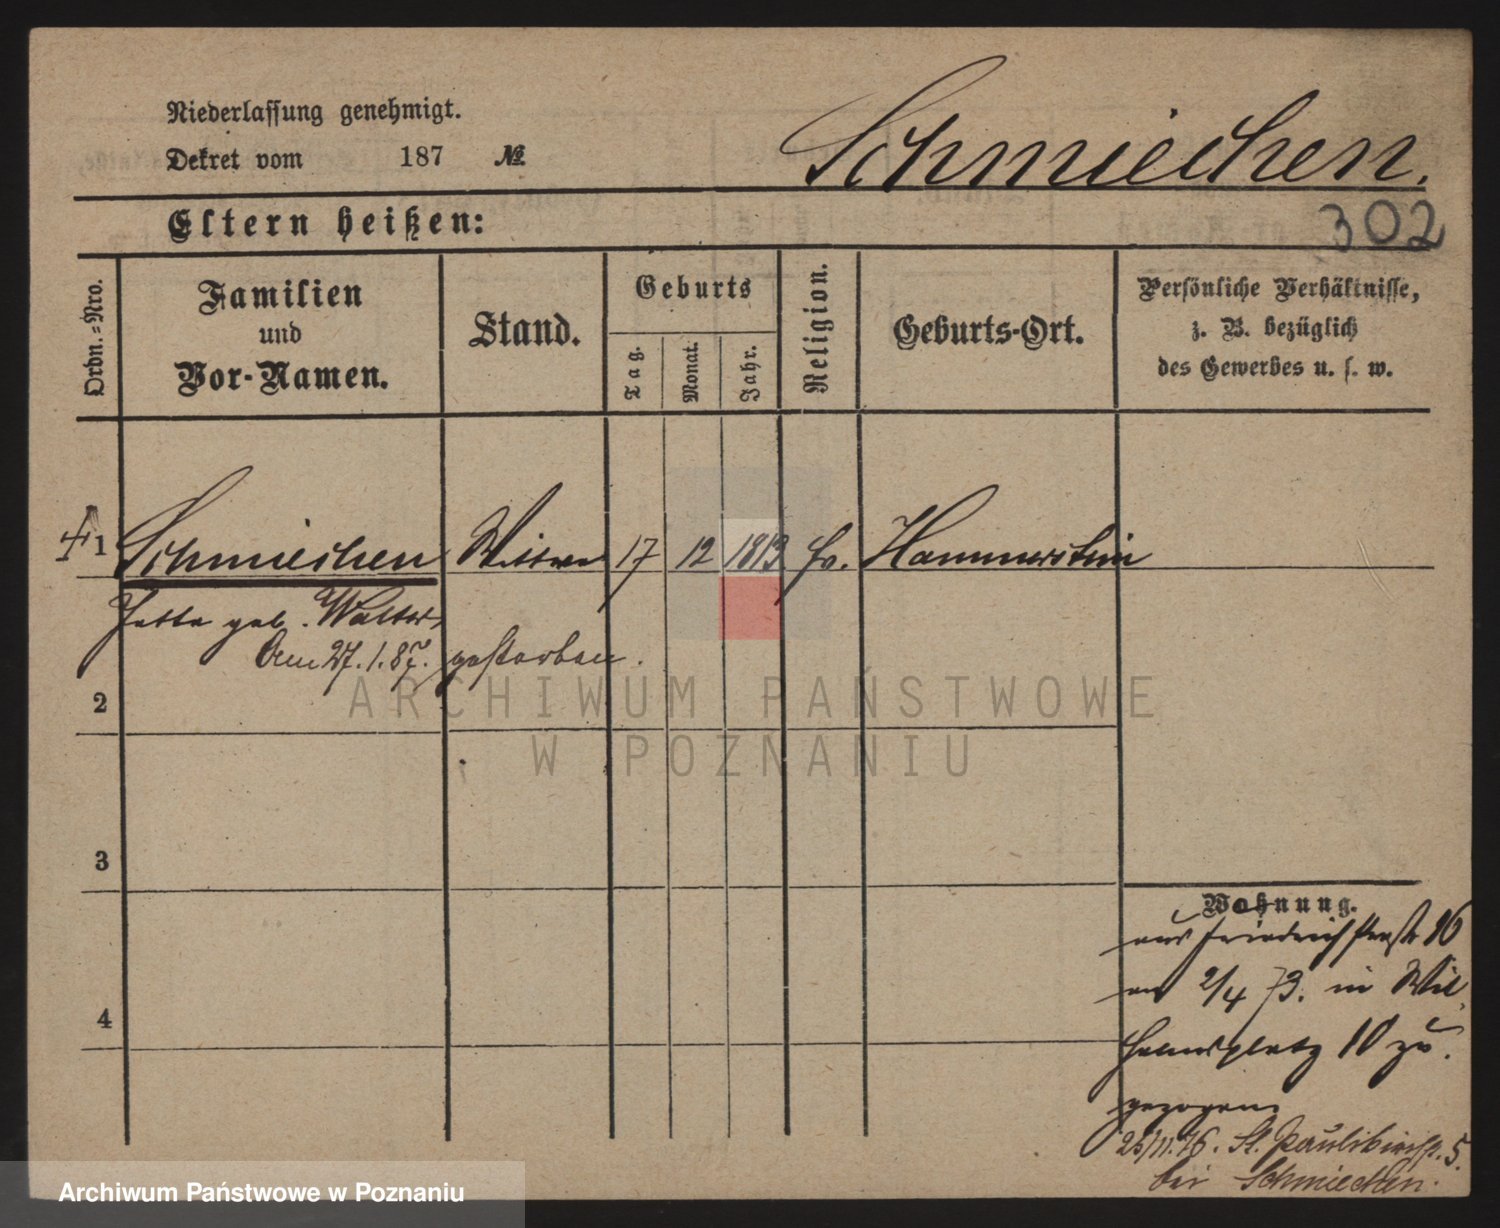 Niederlassung genehmigt.
Dekret vom 187 №
Schmiechen.
302
Eltern heißen:
Ordn.-Nro.
Familien
und
Vor-Namen.
Stand.
Geburts
Tag.
Monat.
Jahr.
Religion.
Geburts-Ort.
Persönliche Verhältnisse,
z. B. bezüglich
des Gewerbes u. s. w.
1 Schmiechen Wittwe 17 12 1813 Ev. Hammerstein
Jette geb. Walter
Am 27.1.87. gestorben.
2
3
4
Wohnung.
aus Friedrichstraße 16
am 2/4 73. in Wil
helmsplatz 10 zu
gezogen
25/11.76. St. Paulikirchstr. 5.
bei Schmiechen.
ARCHIWUM PAŃSTWOWE
W POZNANIU
Archiwum Państwowe w Poznaniu